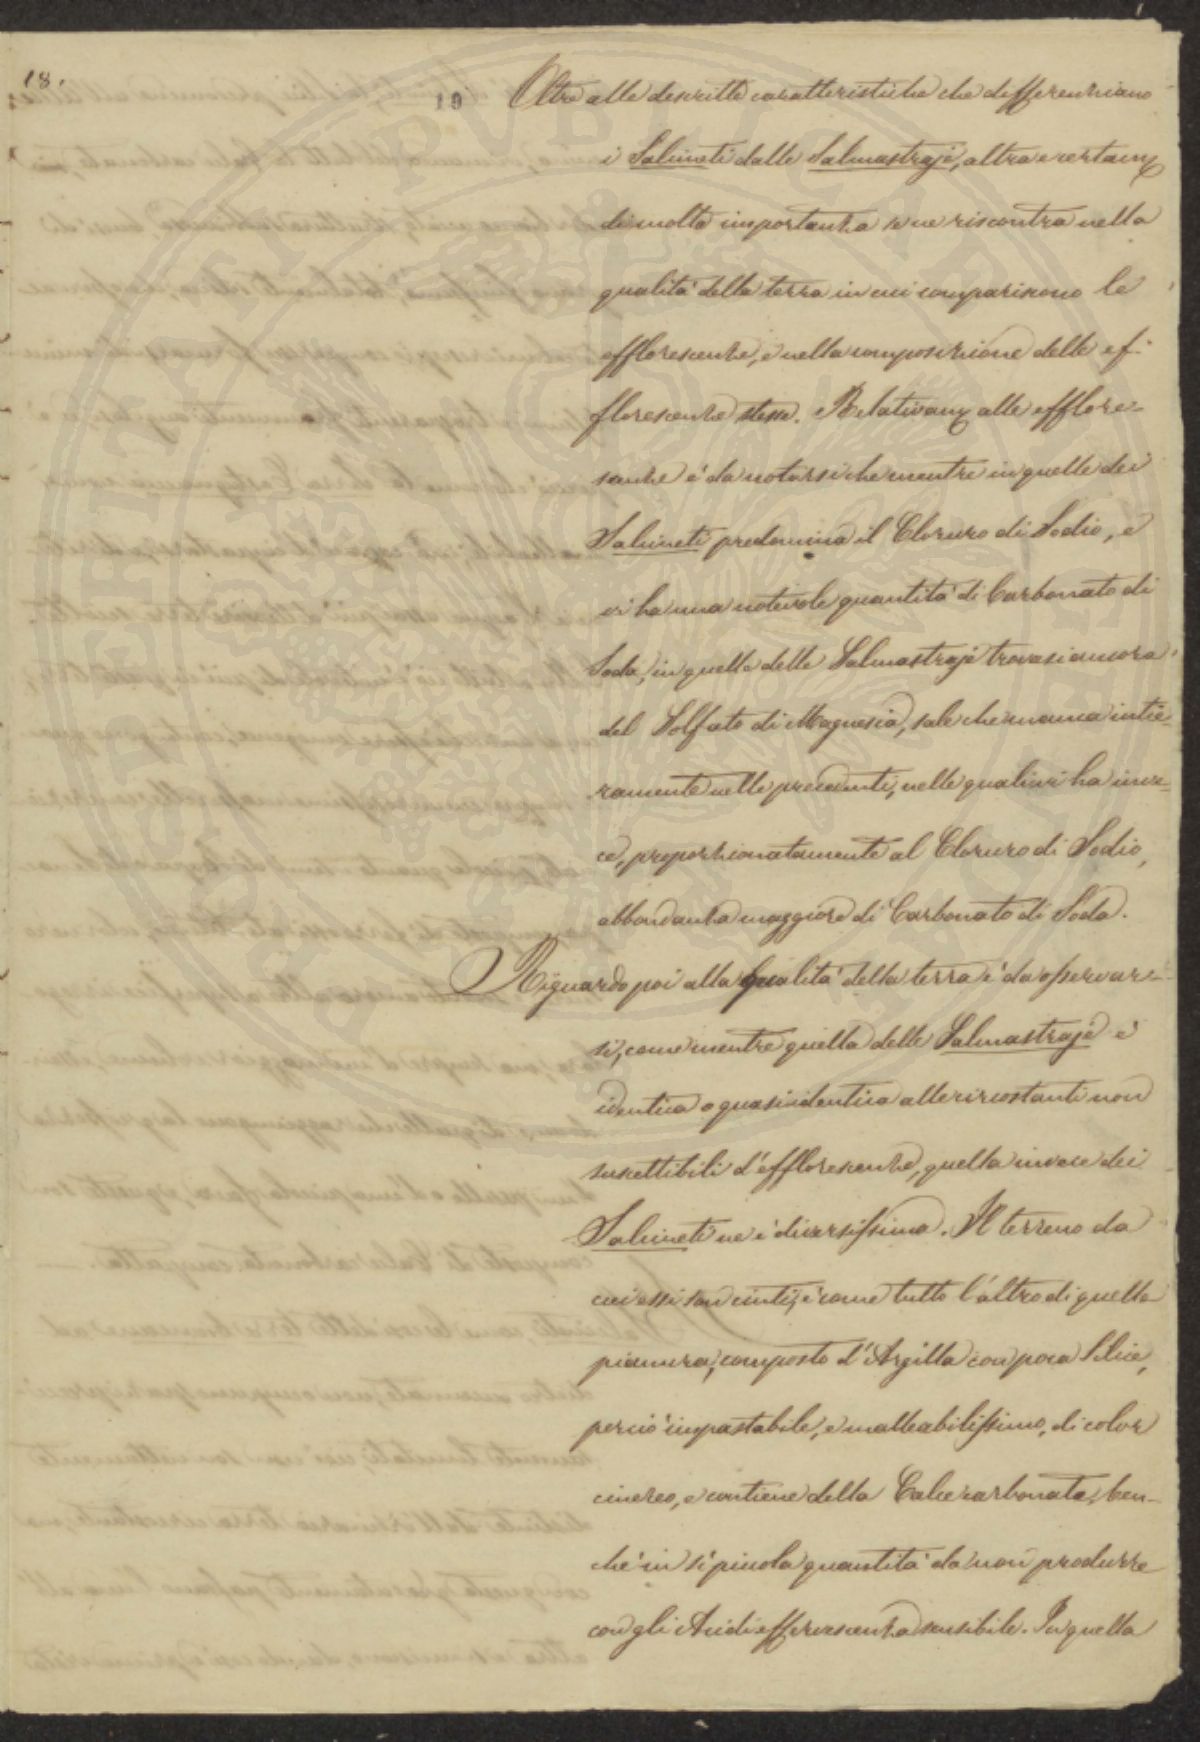 18.
10
Oltre alle descritte caratteristiche che differenziano
i Salineti dalle Salmastraje, altra certamte
di molta importanza se ne riscontra nella
qualità della terra in cui compariscono le
efflorescenze, e nella composizione delle ef-
florescenze stesse. Relativamte alle efflore-
scenze è da notarsi che mentre in quelle dei
Salineti predomina il Cloruro di Sodio, e
vi ha una notevole quantità di Carbonato di
Soda, in quelle delle Salmastraje trovasi ancora
del Solfato di Magnesia, sale che manca intie-
ramente nelle precedenti, nelle quali vi ha inve-
ce, proporzionatamente al Cloruro di Sodio,
abbondanza maggiore di Carbonato di Soda.
Riguardo poi alla qualità della terra è da osservar-
si, come mentre quella delle Salmastraje è
identica o quasi identica alle circostanti non
suscettibili d'efflorescenze, quella invece dei
Salineti ne è diversissima. Il terreno da
cui essi son cinti, è come tutto l'altro di quella
pianura, composto d'Argilla con poca Silice,
perciò impastabile, e malleabilissimo, di color
cinereo, e contiene della Calce carbonata, ben-
chè in sì picciola quantità da non produrre
con gli Acidi effervescenza sensibile. In quella